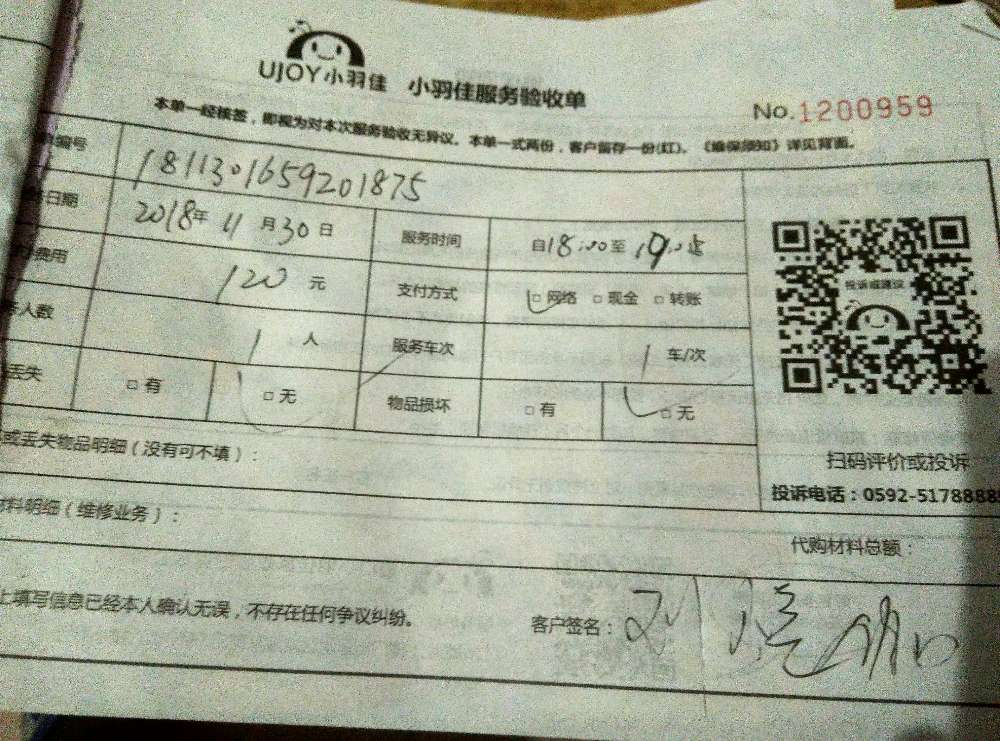 UJOY小羽佳 小羽佳服务验收单
No.1200959
本单一经核签，即视为对本次服务验收无异议。本单一式两份，客户留存一份(红)。《维保须知》详见背面。
编号 1811301659201875
日期 2018年 11月30日 服务时间 自18:00至
费用 120元 支付方式 □网络 □现金 □转账
人数 1人 服务车次 1车/次
丢失 □有 □无 物品损坏 □有 □无
投诉或建议
扫码评价或投诉
投诉电话：0592-5178888
或丢失物品明细（没有可不填）：
材料明细（维修业务）：
代购材料总额：
上填写信息已经本人确认无误，不存在任何争议纠纷。
客户签名：刘